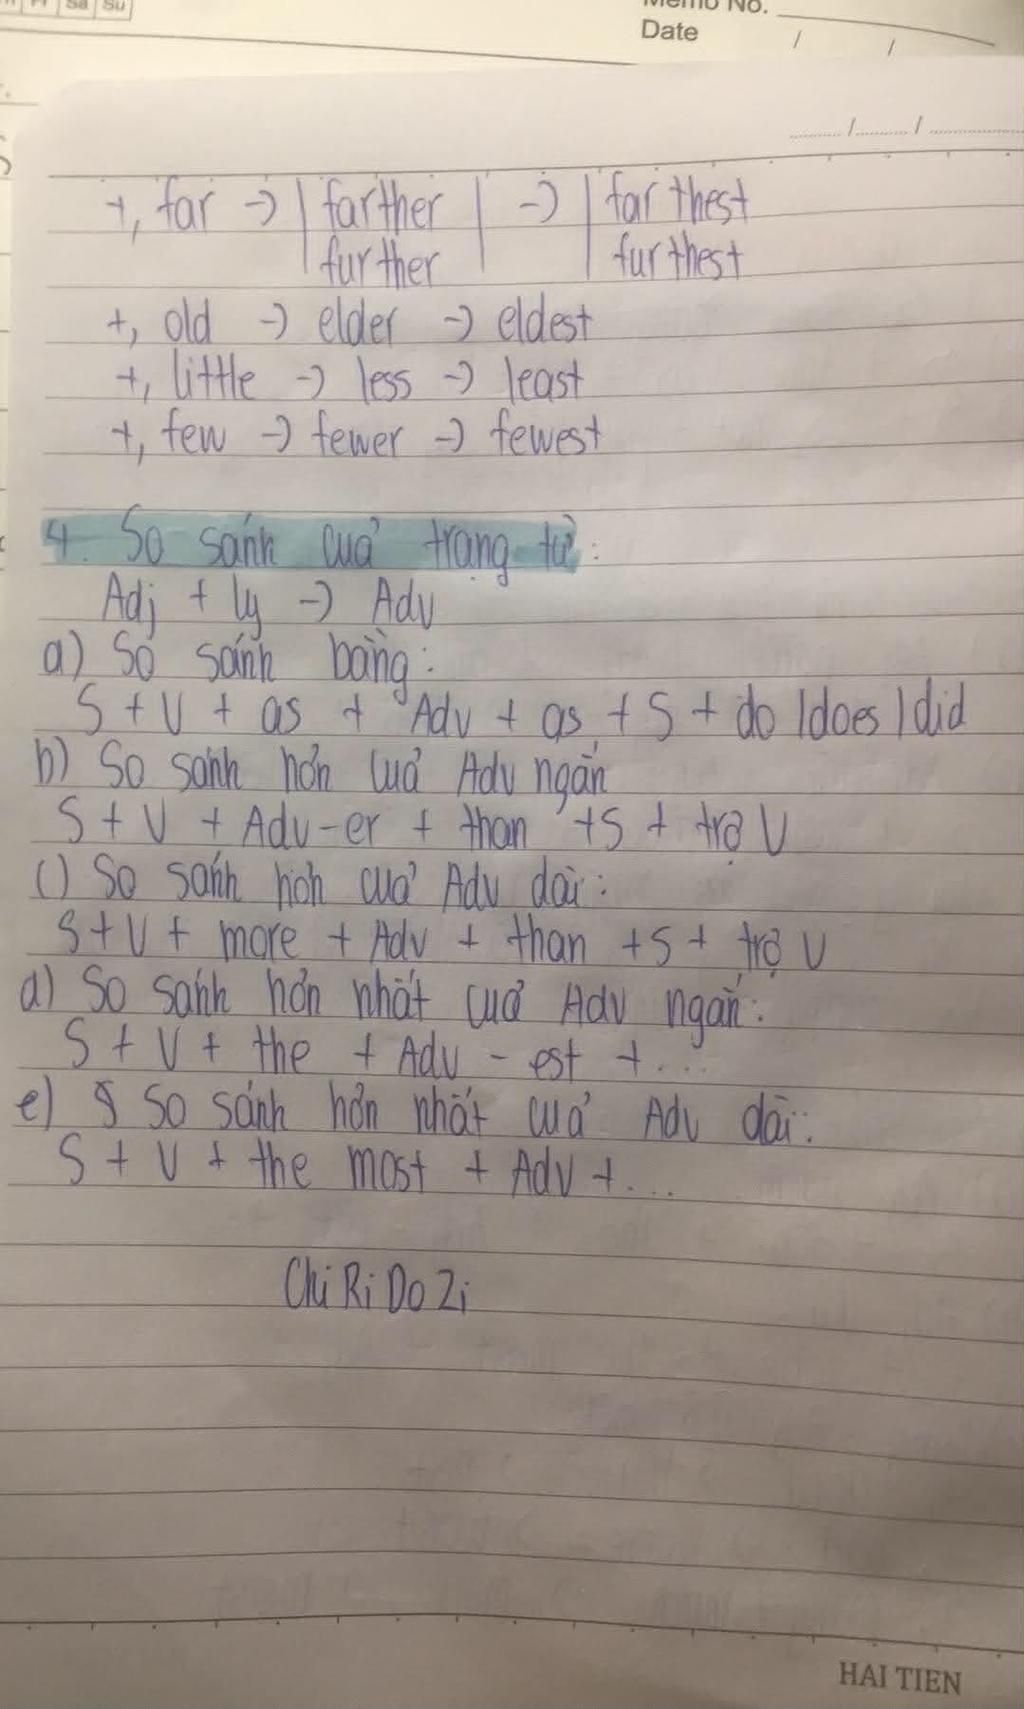 Sa Su
Memo No.
Date / /
/ /
+, far -> | farther | -> | farthest
further furthest
+, old -> elder -> eldest
+, little -> less -> least
+, few -> fewer -> fewest
4. So sánh của trạng từ:
Adj + ly -> Adv
a) So sánh bằng:
S + V + as + Adv + as + S + do / does / did
b) So sánh hơn của Adv ngắn
S + V + Adv-er + than + S + trợ V
c) So sánh hơn của Adv dài:
S + V + more + Adv + than + S + trợ V
d) So sánh hơn nhất của Adv ngắn:
S + V + the + Adv - est + ...
e) So sánh hơn nhất của Adv dài:
S + V + the most + Adv + ...
Chi Ri Do Zi
HAI TIEN